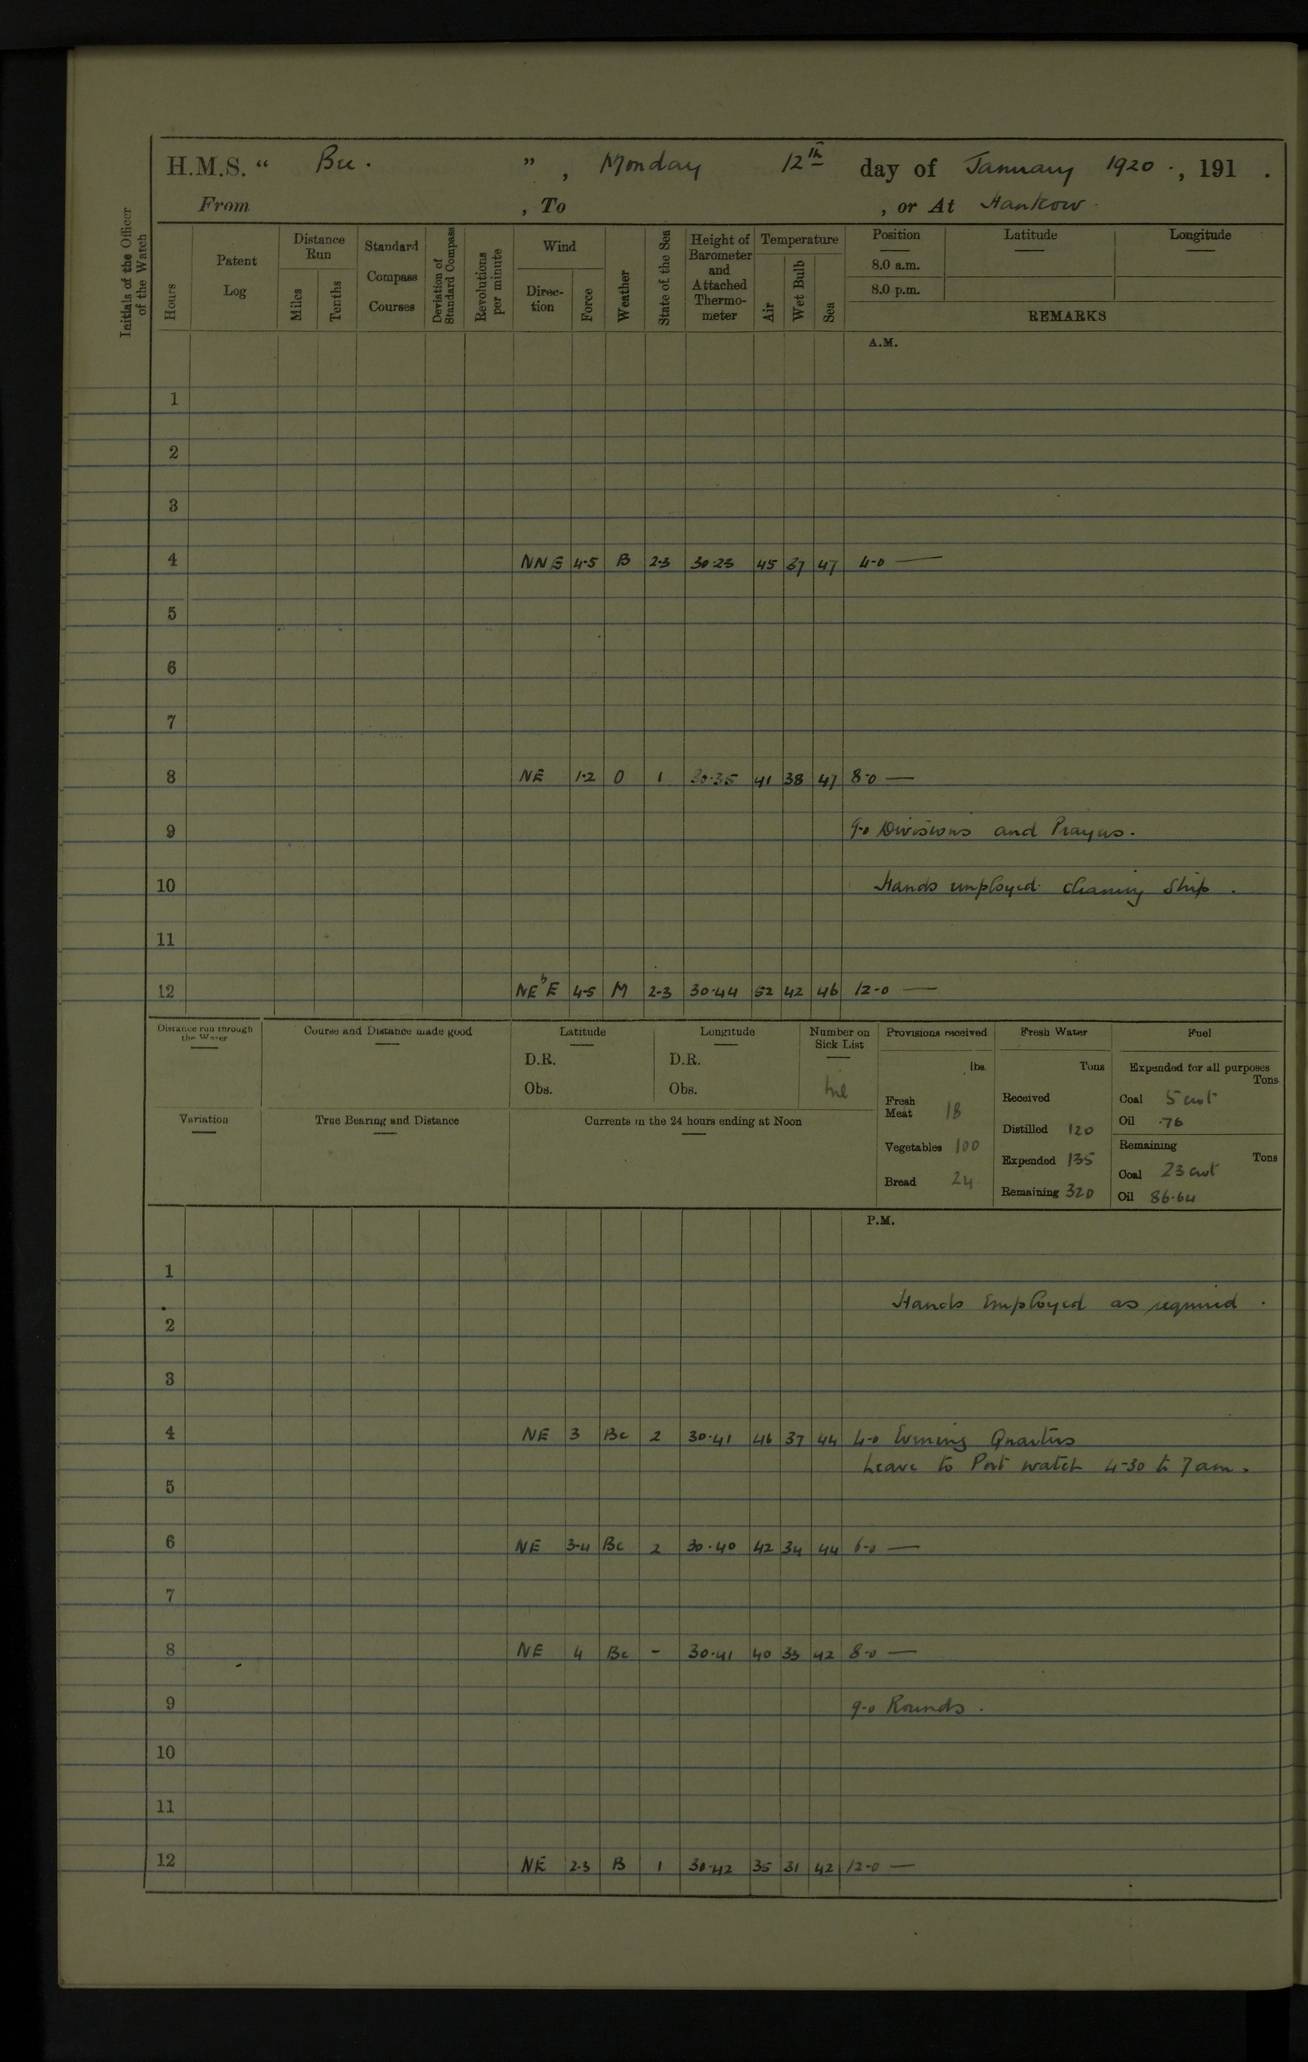 H.M.S. “ Bee. ” , Monday 12th day of January 1920 ., 191 .
From , To , or At Hankow.
Initials of the Officer of the Watch
Hours
Patent Log
Distance Run
Miles
Tenths
Standard Compass Courses
Deviation of Standard Compass
Revolutions per minute
Wind
Direction
Force
Weather
State of the Sea
Height of Barometer and Attached Thermometer
Temperature
Air
Wet Bulb
Sea
Position
8.0 a.m.
8.0 p.m.
Latitude
Longitude
REMARKS
A.M.
1
2
3
4 NNE 4-5 B 2-3 30.23 45 37 47 4-0 —
5
6
7
8 NE 1-2 O 1 30.35 41 38 47 8-0 —
9 9-0 Divisions and Prayers.
10 Hands employed cleaning Ship.
11
12 NEbE 4-5 M 2-3 30.44 52 42 46 12-0 —
Distance run through the Water
Course and Distance made good
Latitude
D.R.
Obs.
Longitude
D.R.
Obs.
Number on Sick List
Nil
Variation
True Bearing and Distance
Currents in the 24 hours ending at Noon
Provisions received
lbs.
Fresh Meat 18
Vegetables 100
Bread 24
Fresh Water
Tons
Received
Distilled 120
Expended 135
Remaining 320
Fuel
Expended for all purposes
Tons
Coal 5 cwt
Oil .76
Remaining
Tons
Coal 23 cwt
Oil 86.64
P.M.
1
Hands Employed as required.
2
3
4 NE 3 Bc 2 30.41 46 37 44 4-0 Evening Quarters
Leave to Port watch 4-30 to 7am.
5
6 NE 3-4 Bc 2 30.40 42 34 44 6-0 —
7
8 NE 4 Bc - 30.41 40 33 42 8-0 —
9 9-0 Rounds.
10
11
12 NE 2-3 B 1 30.42 35 31 42 12-0 —